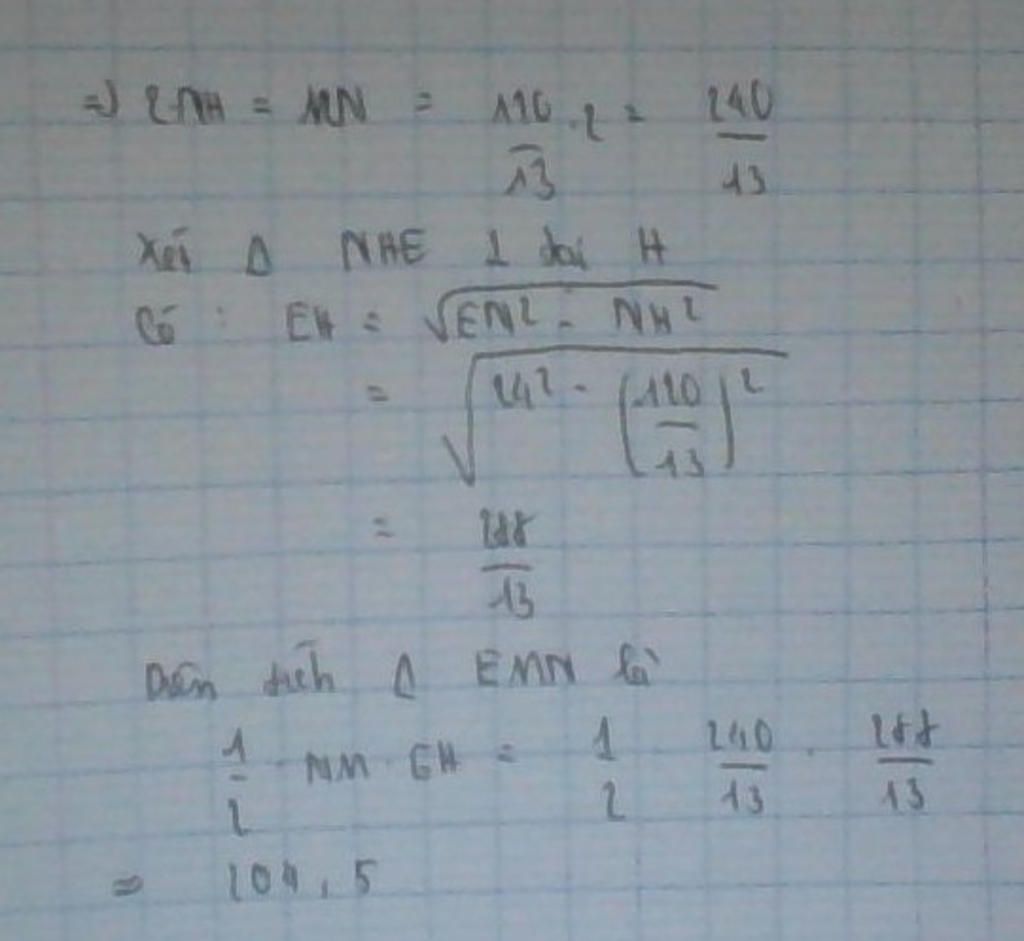 => 2NH = MN = 120/13 . 2 = 240/13
Xét Δ NHE ⊥ tại H
Có : EH = √(EN² - NH²)
= √(24² - (120/13)²)
= 288/13
Diện tích Δ EMN là
1/2 . NM . EH = 1/2 240/13 . 288/13
= 204,5